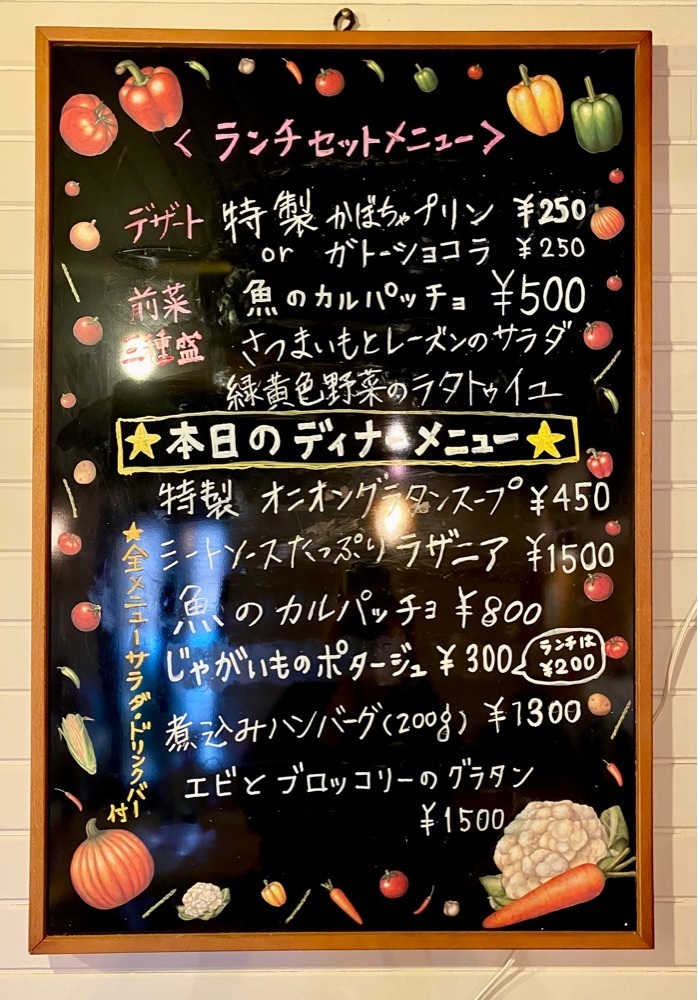 <ランチセットメニュー>
デザート 特製 かぼちゃプリン ¥250
or ガトーショコラ ¥250
前菜 魚のカルパッチョ ¥500
三種盛 さつまいもとレーズンのサラダ
緑黄色野菜のラタトゥイユ
★本日のディナーメニュー★
特製 オニオングラタンスープ ¥450
ミートソースたっぷりラザニア ¥1500
魚のカルパッチョ ¥800
じゃがいものポタージュ ¥300
ランチは
¥200
煮込みハンバーグ(200g) ¥1300
エビとブロッコリーのグラタン
¥1500
★全メニューサラダ・ドリンクバー付